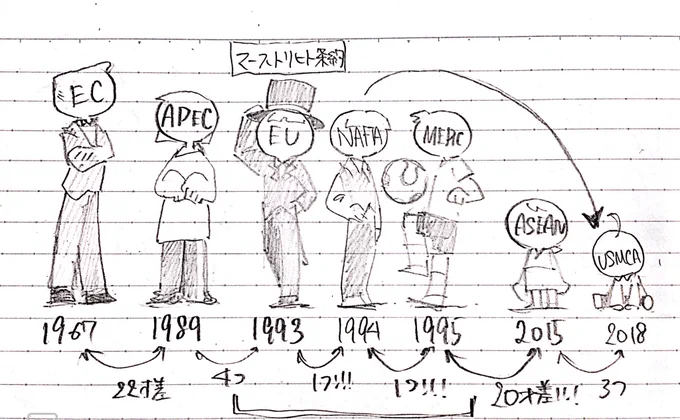 マーストリヒト条約
EC
APEC
EU
NAFTA
MERC
ASEAN
USMCA
1967 1989 1993 1994 1995 2015 2018
22才差 4つ 1つ!!! 1つ!!! 20才差!!! 3つ